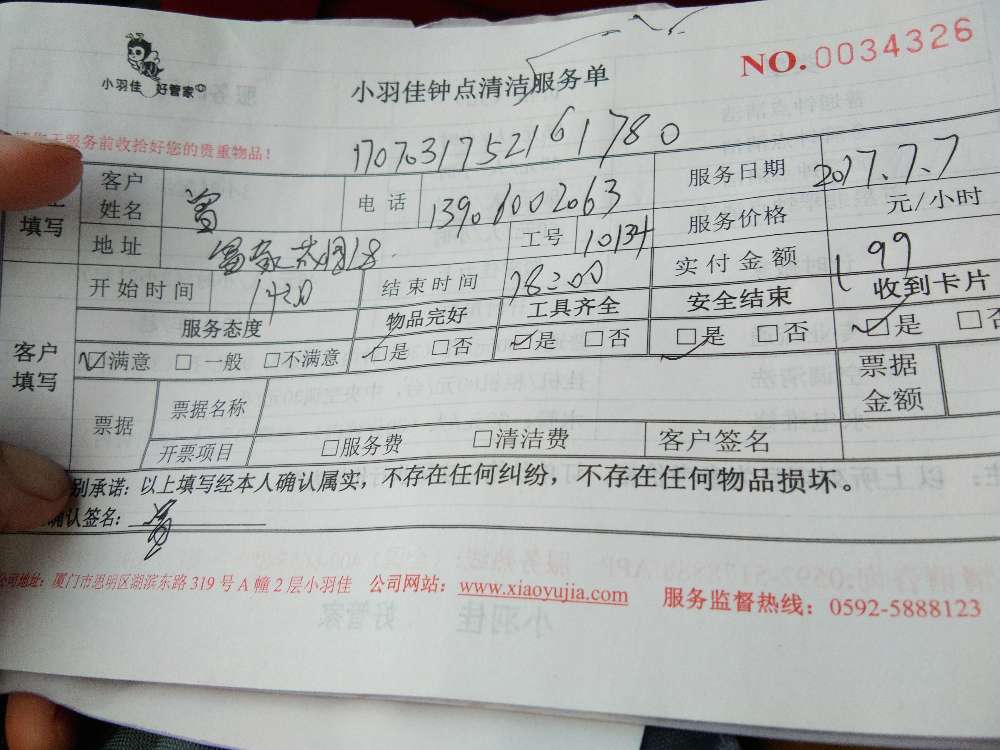 小羽佳 好管家
小羽佳钟点清洁服务单
NO.0034326
服务前收拾好您的贵重物品!
1707031752161780
填写
客户姓名 曾 电话 13901002063 服务日期 2017.7.7
地址 工号 10134 服务价格 元/小时
开始时间 1400 结束时间 18:00 实付金额 199
客户填写
服务态度 物品完好 工具齐全 安全结束 收到卡片
☑满意 □一般 □不满意 ☑是 □否 ☑是 □否 ☑是 □否 ☑是 □否
票据 票据名称 票据金额
开票项目 □服务费 □清洁费 客户签名
别承诺:以上填写经本人确认属实,不存在任何纠纷,不存在任何物品损坏。
确认签名: 曾
公司地址:厦门市思明区湖滨东路319号A幢2层小羽佳 公司网站:www.xiaoyujia.com 服务监督热线:0592-5888123